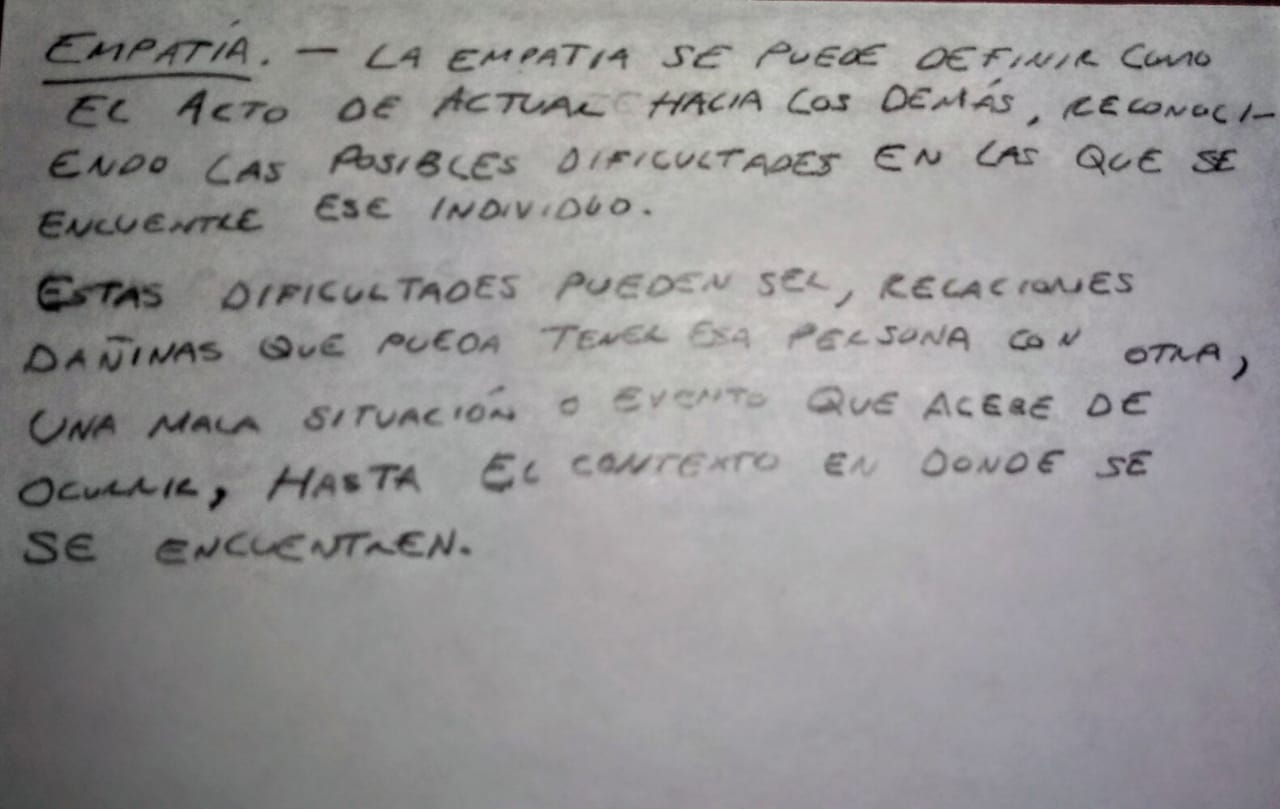 EMPATÍA. — LA EMPATIA SE PUEDE DEFINIR COMO
EL ACTO DE ACTUAR HACIA LOS DEMÁS, RECONOCI-
ENDO LAS POSIBLES DIFICULTADES EN LAS QUE SE
ENCUENTRE ESE INDIVIDUO.
ESTAS DIFICULTADES PUEDEN SER, RELACIONES
DAÑINAS QUE PUEDA TENER ESA PERSONA CON OTRA,
UNA MALA SITUACIÓN O EVENTO QUE ACEBE DE
OCURRIR, HASTA EL CONTEXTO EN DONDE SE
SE ENCUENTREN.